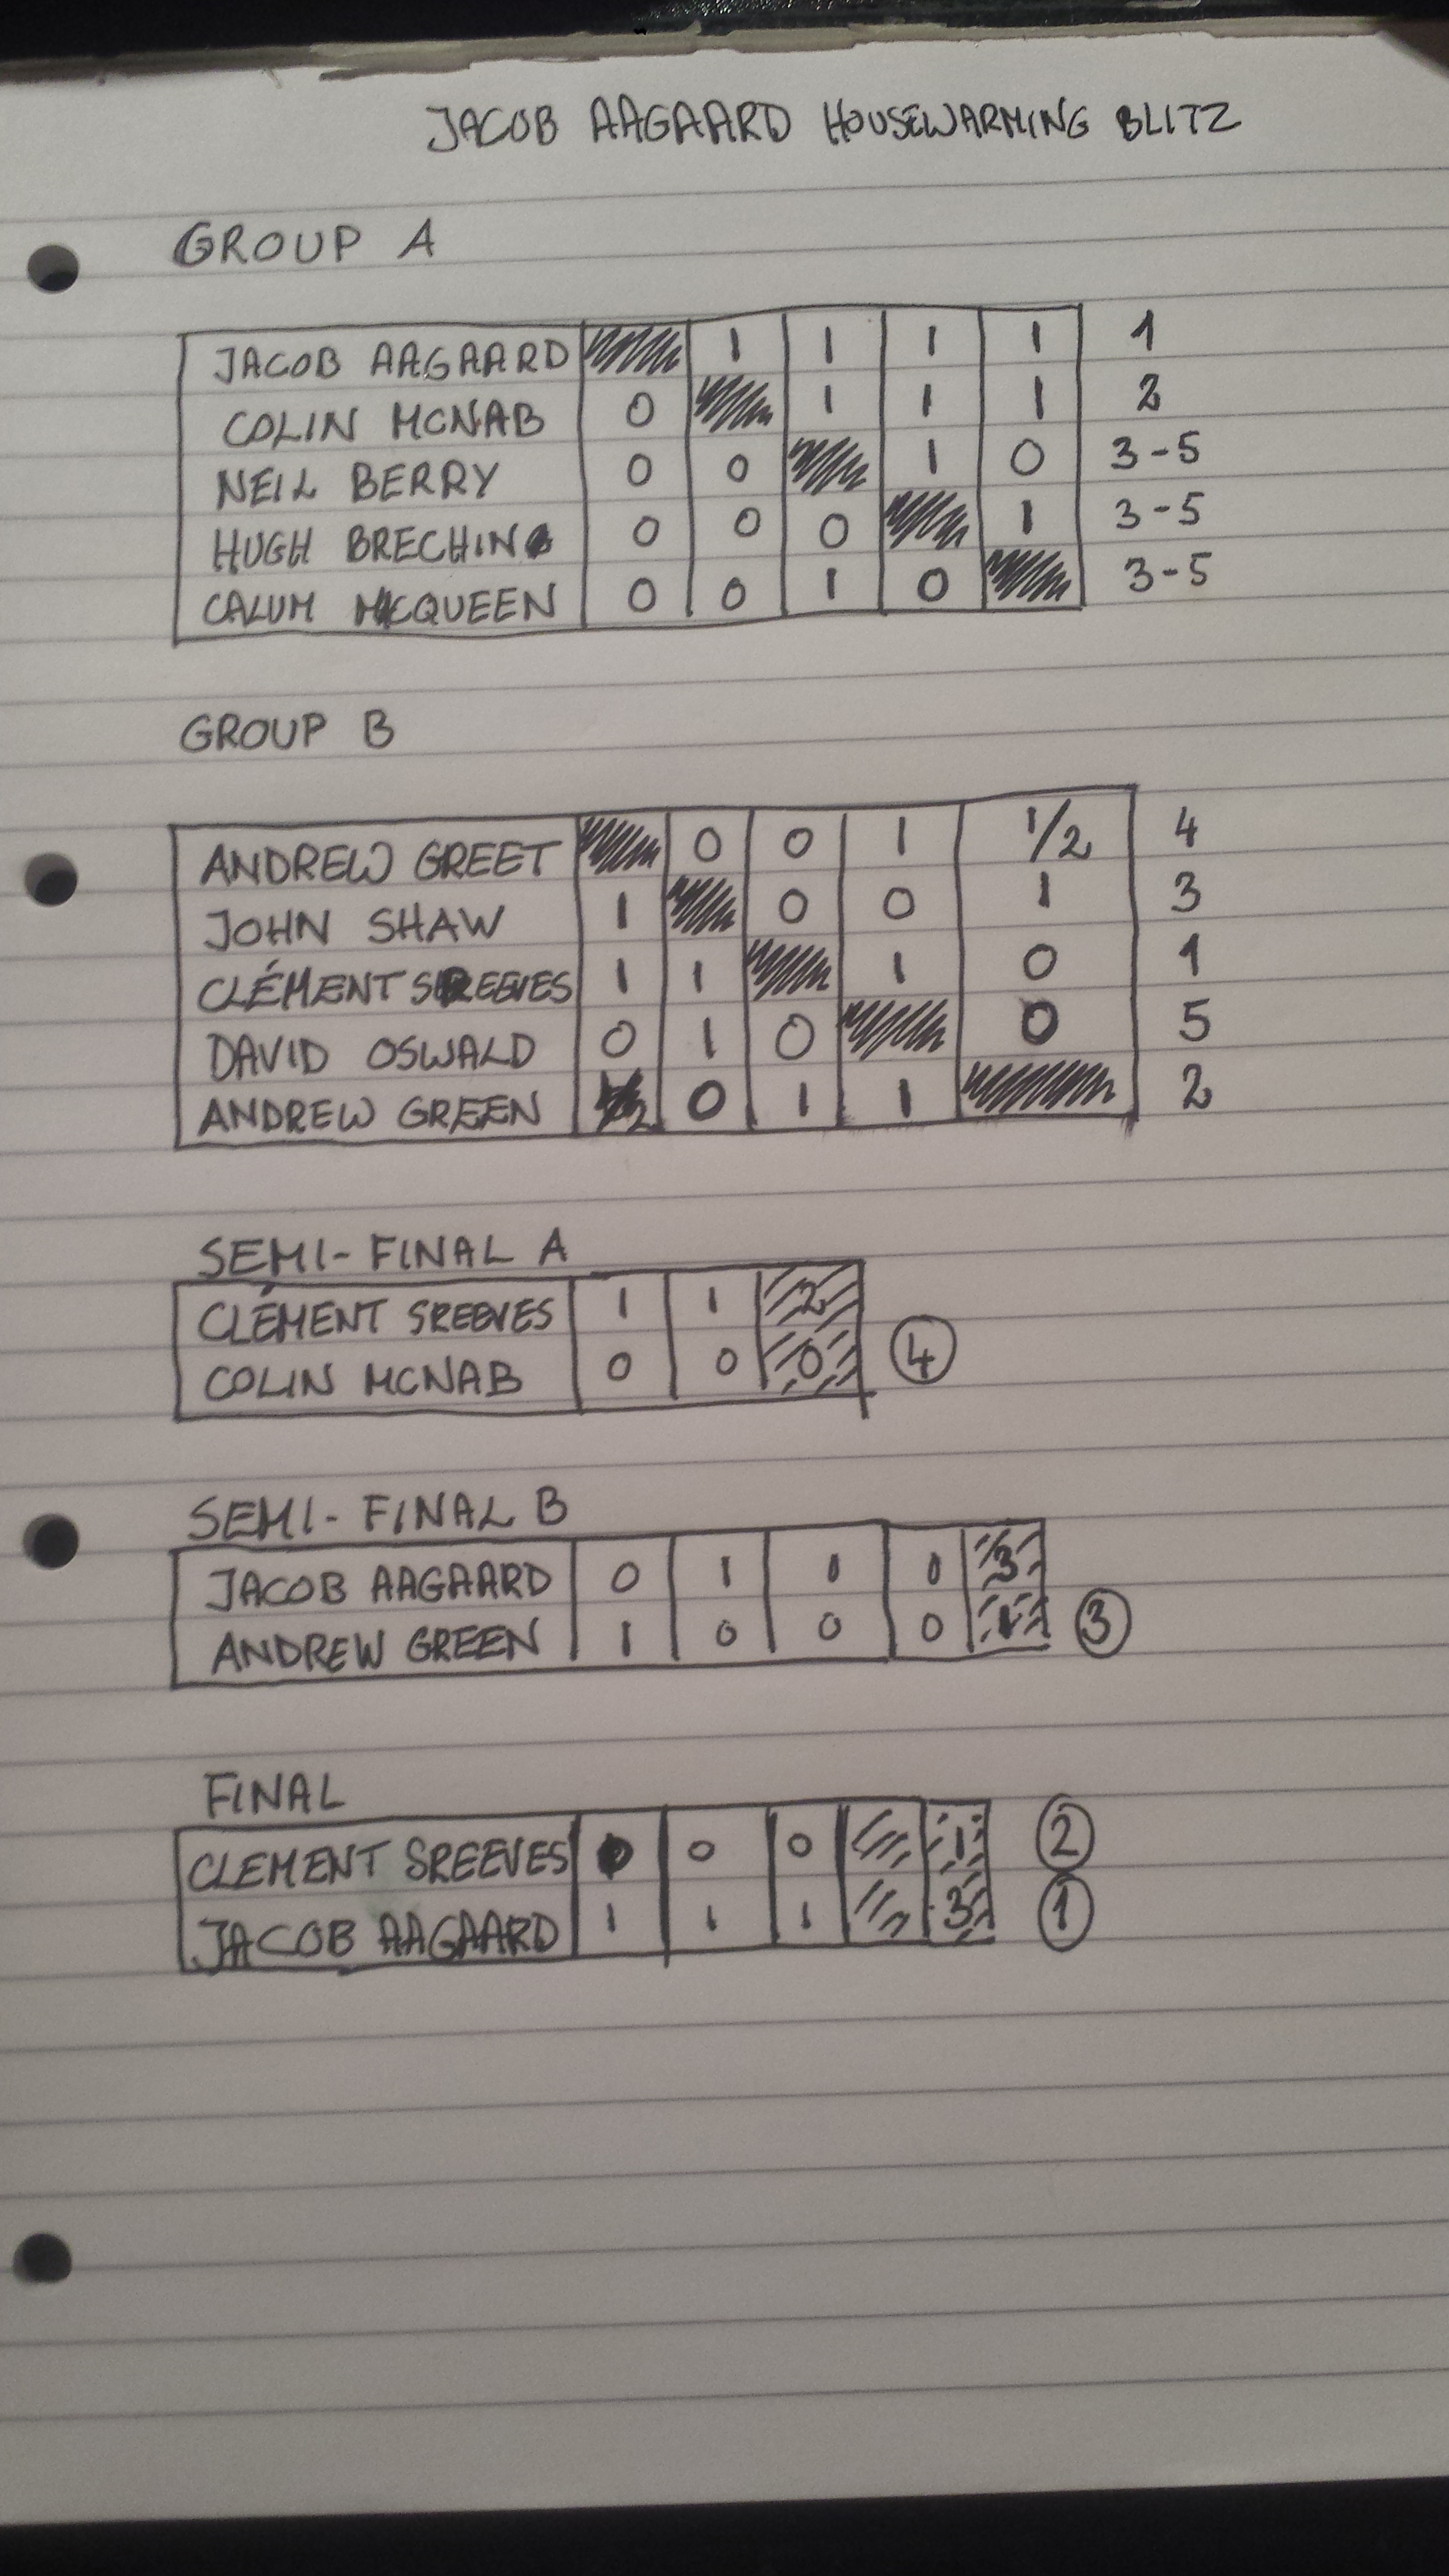 JACOB AAGAARD HOUSEWARMING BLITZ
GROUP A
JACOB AAGAARD 1 1 1 1 1
COLIN MCNAB 0 1 1 1 2
NEIL BERRY 0 0 1 0 3-5
HUGH BRECHIN 0 0 0 1 3-5
CALUM MCQUEEN 0 0 1 0 3-5
GROUP B
ANDREW GREET 0 0 1 1/2 4
JOHN SHAW 1 0 0 1 3
CLÉMENT SREEVES 1 1 1 0 1
DAVID OSWALD 0 1 0 0 5
ANDREW GREEN 0 1 1 2
SEMI-FINAL A
CLÉMENT SREEVES 1 1 2
COLIN MCNAB 0 0 0 4
SEMI-FINAL B
JACOB AAGAARD 0 1 1 1 3
ANDREW GREEN 1 0 0 0 1 3
FINAL
CLEMENT SREEVES 0 0 1 2
JACOB AAGAARD 1 1 1 3 1